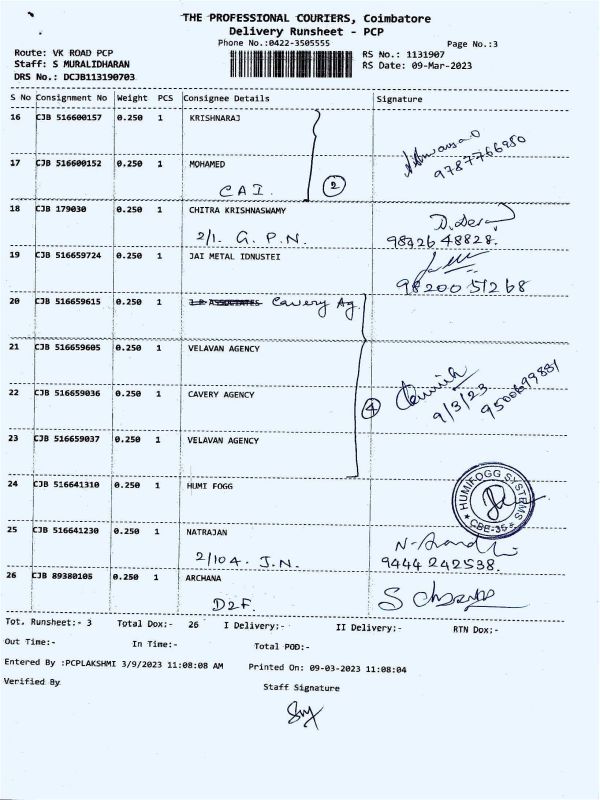 THE PROFESSIONAL COURIERS, Coimbatore
Delivery Runsheet - PCP
Phone No.:0422-3505555
Page No.:3
Route: VK ROAD PCP
RS No.: 1131907
Staff: S MURALIDHARAN
RS Date: 09-Mar-2023
DRS No.: DCJB113190703
S No Consignment No Weight PCS Consignee Details Signature
16 CJB 516600157 0.250 1 KRISHNARAJ
9787766980
17 CJB 516600152 0.250 1 MOHAMED
CAI. 2
18 CJB 179030 0.250 1 CHITRA KRISHNASWAMY
2/1. G. P. N. 98426 48828.
19 CJB 516659724 0.250 1 JAI METAL IDNUSTEI
98200 51268
20 CJB 516659615 0.250 1 J.R ASSOCIATES Cavery Ag.
21 CJB 516659605 0.250 1 VELAVAN AGENCY
22 CJB 516659036 0.250 1 CAVERY AGENCY
4 9/3/23 9500699881
23 CJB 516659037 0.250 1 VELAVAN AGENCY
24 CJB 516641310 0.250 1 HUMI FOGG
HUMIFOGG SYSTEMS
★ CBE-35 ★
25 CJB 516641230 0.250 1 NATRAJAN
2/104. J.N. 9444 242538
26 CJB 89380105 0.250 1 ARCHANA
D2F.
Tot. Runsheet:- 3 Total Dox:- 26 I Delivery:- II Delivery:- RTN Dox:-
Out Time:- In Time:- Total POD:-
Entered By :PCPLAKSHMI 3/9/2023 11:08:08 AM Printed On: 09-03-2023 11:08:04
Verified By
Staff Signature